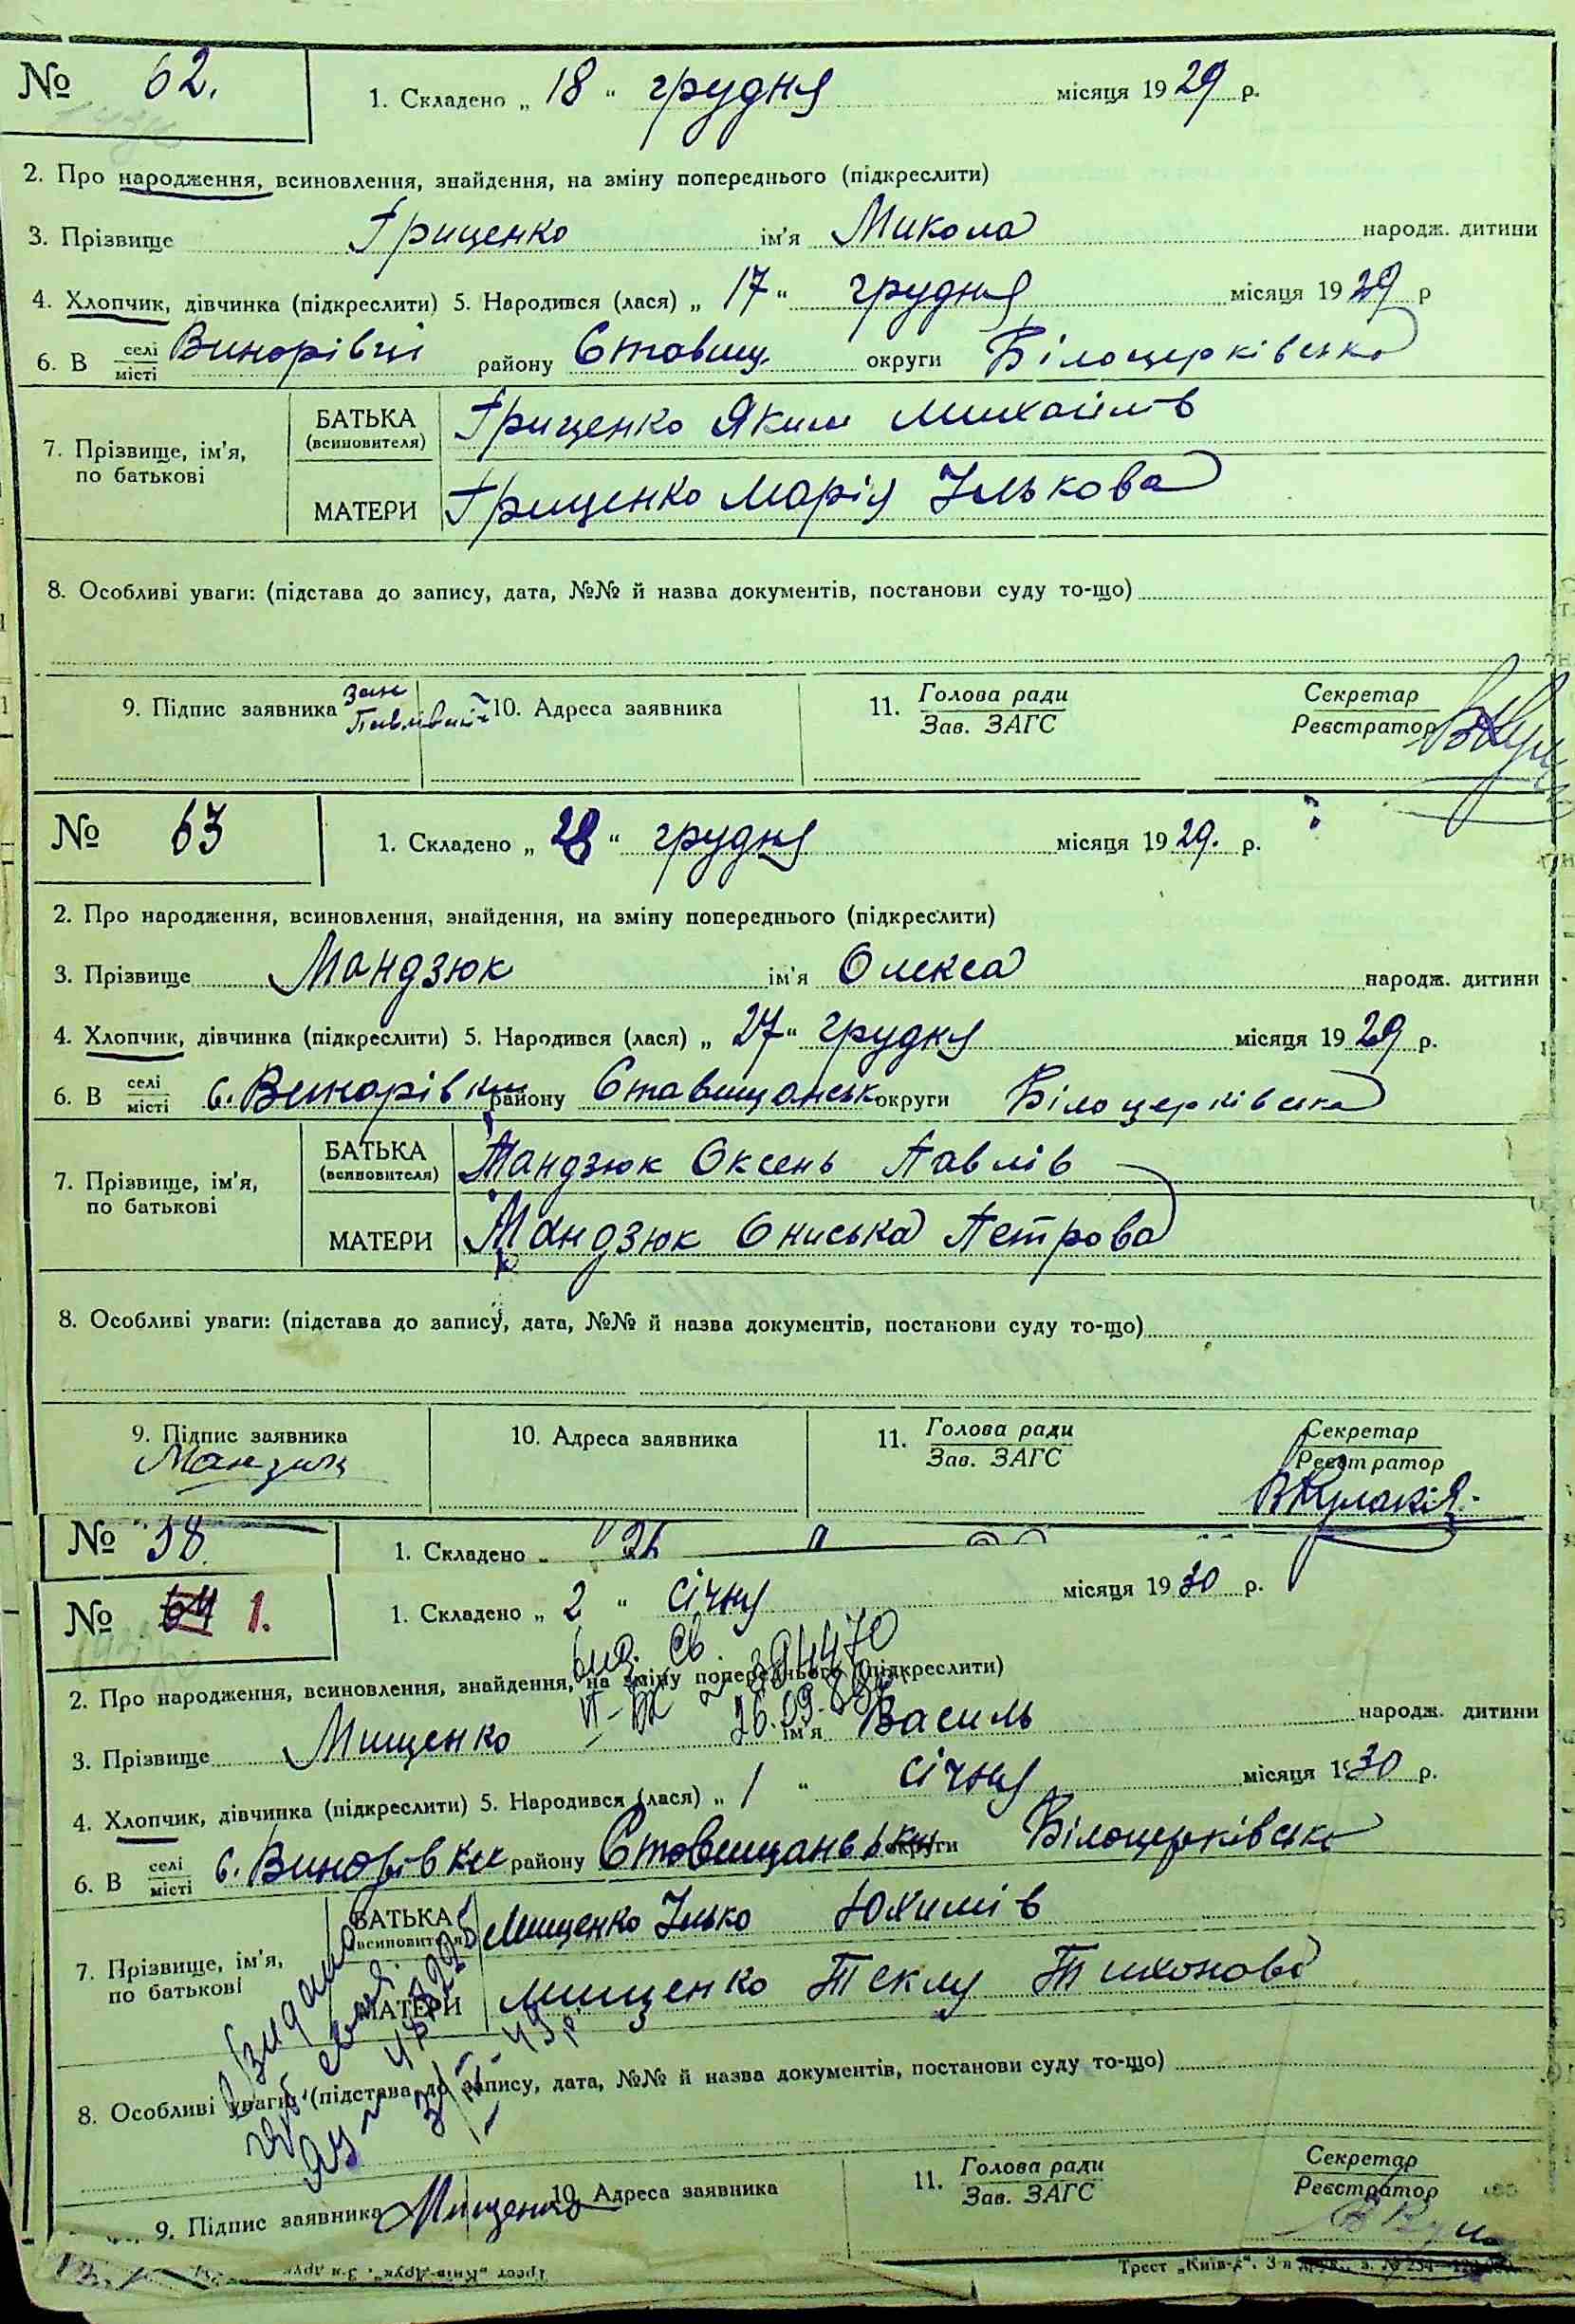 № 62.
1. Складено „ 18 “ грудня місяця 1929 р.
2. Про народження, всиновлення, знайдення, на зміну попереднього (підкреслити)
3. Прізвище Гриценко ім'я Микола народж. дитини
4. Хлопчик, дівчинка (підкреслити) 5. Народився (лася) „ 17 “ грудня місяця 1929 р
6. В селі місті Винорівці району Ставищ. округи Білоцерківська
7. Прізвище, ім'я, по батькові
БАТЬКА (всиновителя) Грищенко Яким Михайлів
МАТЕРИ Грищенко Марія Ількова
8. Особливі уваги: (підстава до запису, дата, №№ й назва документів, постанови суду то-що)
9. Підпис заявника 10. Адреса заявника 11. Голова ради Зав. ЗАГС Секретар Реєстратор
№ 63
1. Складено „ 28 “ грудня місяця 1929. р.
2. Про народження, всиновлення, знайдення, на зміну попереднього (підкреслити)
3. Прізвище Мандзюк ім'я Олекса народж. дитини
4. Хлопчик, дівчинка (підкреслити) 5. Народився (лася) „ 27 “ грудня місяця 1929 р.
6. В селі місті с. Винорівки району Ставищанськ округи Білоцерківська
7. Прізвище, ім'я, по батькові
БАТЬКА (всиновителя) Мандзюк Оксень Павлів
МАТЕРИ Мандзюк Ониська Петрова
8. Особливі уваги: (підстава до запису, дата, №№ й назва документів, постанови суду то-що)
9. Підпис заявника 10. Адреса заявника 11. Голова ради Зав. ЗАГС Секретар Реєстратор
Манзюк
№ 38.
1. Складено „
№ 64 1.
1. Складено „ 2 “ січня місяця 1930 р.
2. Про народження, всиновлення, знайдення, на зміну попереднього (підкреслити)
26.09.
3. Прізвище Мищенко ім'я Василь народж. дитини
4. Хлопчик, дівчинка (підкреслити) 5. Народився (лася) „ 1 “ січня місяця 1930 р.
6. В селі місті с. Винорівки району Ставищанськ округи Білоцерківсько
7. Прізвище, ім'я, по батькові
БАТЬКА (всиновителя) Мищенко Ілько Юхимів
МАТЕРИ Мищенко Теклу Тихонова
8. Особливі уваги: (підстава до запису, дата, №№ й назва документів, постанови суду то-що)
9. Підпис заявника Мищенко 10. Адреса заявника 11. Голова ради Зав. ЗАГС Секретар Реєстратор